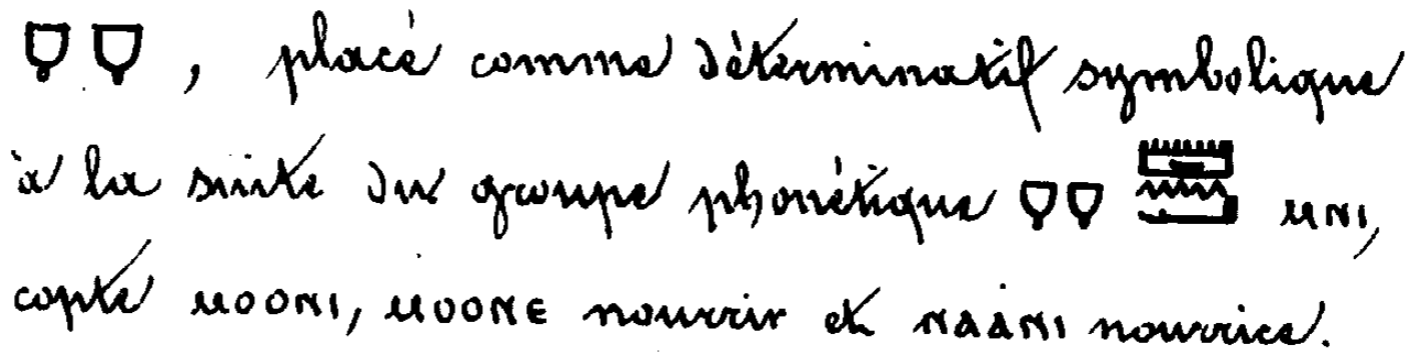 , placé comme déterminatif symbolique
à la suite du groupe phonétique ⲙⲛⲓ,
copte ⲙⲟⲟⲛⲓ, ⲙⲟⲟⲛⲉ nourrir et ⲛⲁⲁⲛⲓ nourrice.